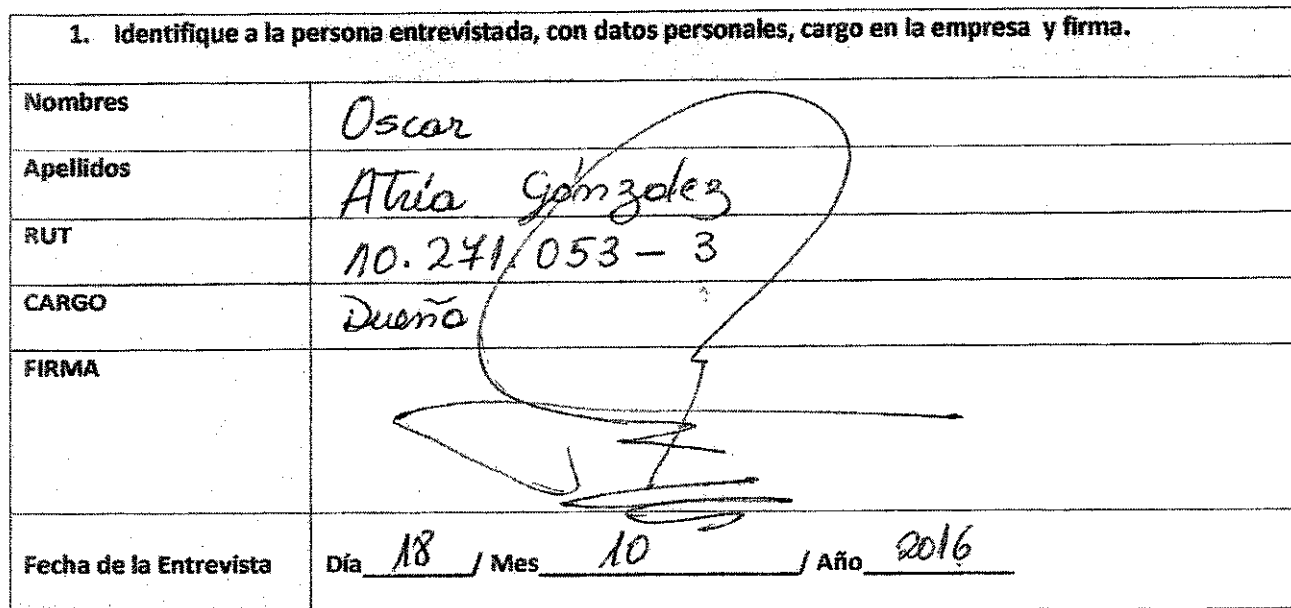 1. Identifique a la persona entrevistada, con datos personales, cargo en la empresa y firma.
Nombres Oscar
Apellidos Atria Gónzalez
RUT 10.271.053 - 3
CARGO Dueño
FIRMA
Fecha de la Entrevista Día 18 / Mes 10 / Año 2016